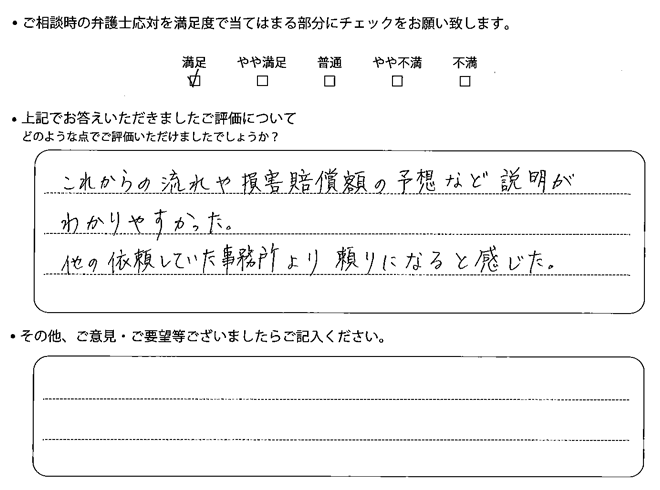 ・ご相談時の弁護士応対を満足度で当てはまる部分にチェックをお願い致します。
満足 やや満足 普通 やや不満 不満
☑ □ □ □ □
・上記でお答えいただきましたご評価について
どのような点でご評価いただけましたでしょうか？
これからの流れや損害賠償額の予想など説明が
わかりやすかった。
他の依頼していた事務所より頼りになると感じた。
・その他、ご意見・ご要望等ございましたらご記入ください。